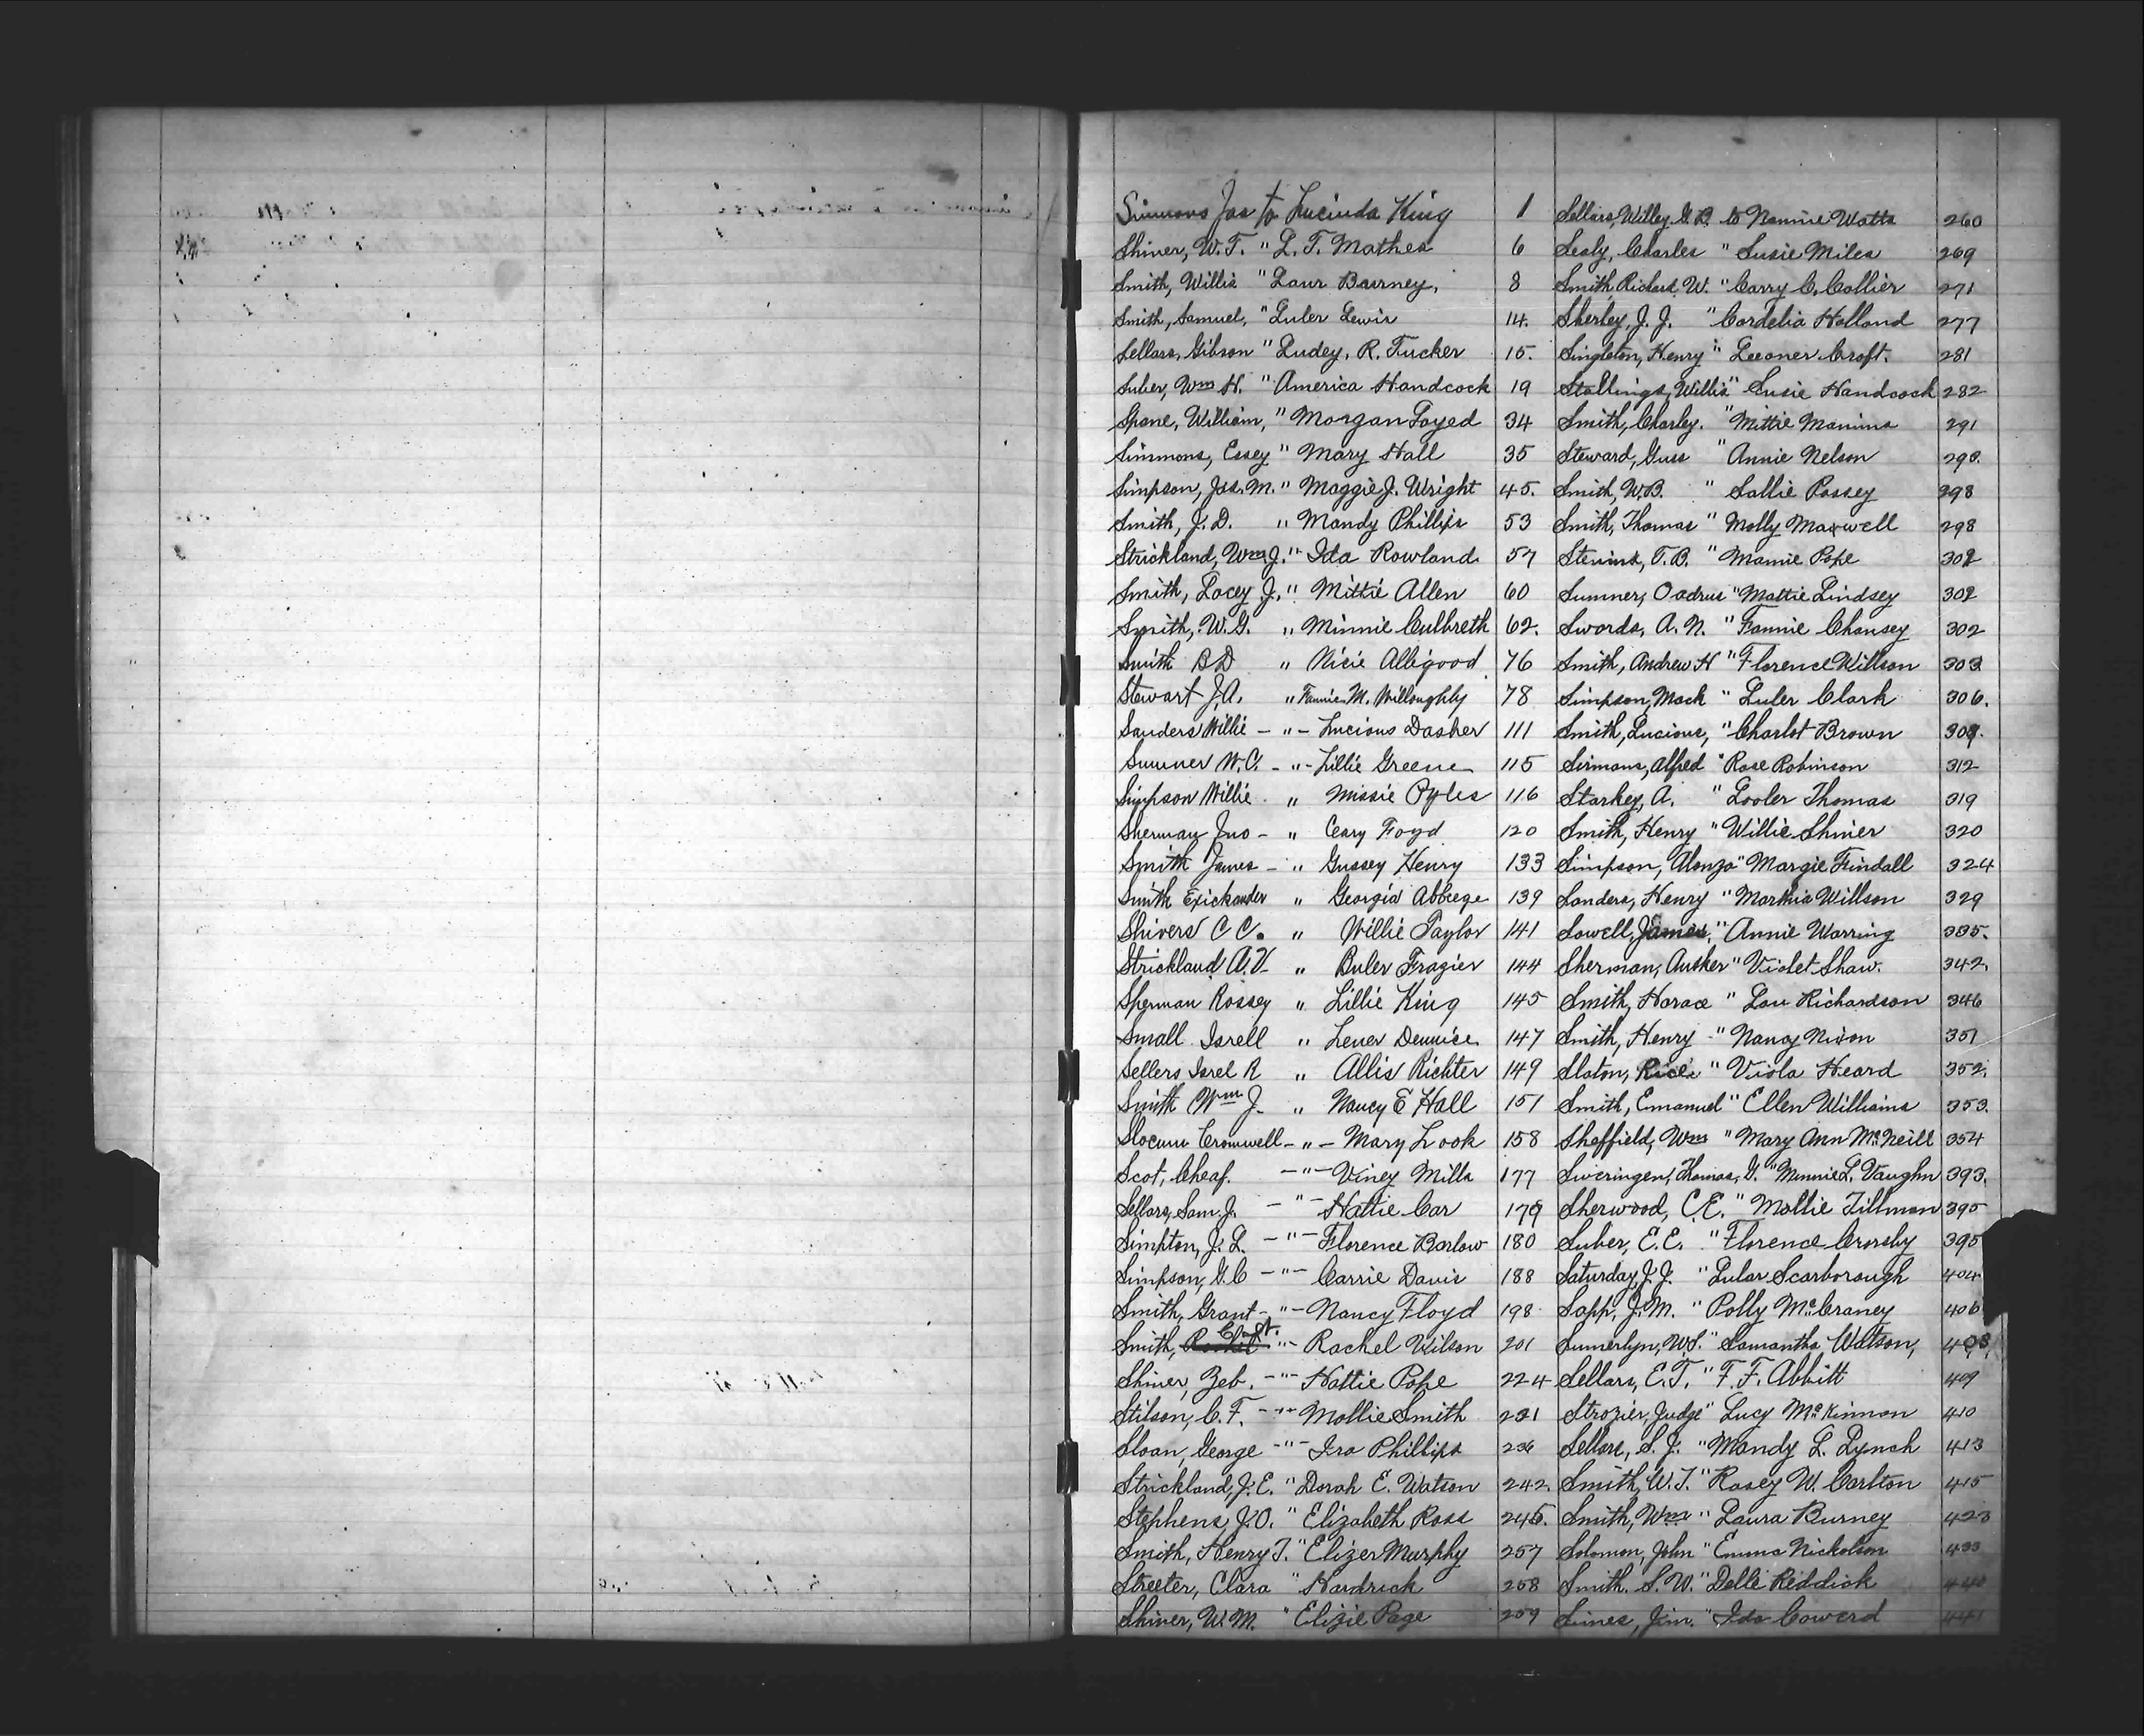 Simmons Jas to Lucinda King 1
Shiner, W. T. " L. T. Mathes 6
Smith, Willis " Laur Burney, 8
Smith, Samuel, " Luler Lewis 14.
Sellars, Gibson " Ludey, R. Tucker 15.
Suber, Wm H. " America Handcock 19
Spane, William, " Morgan Foyed 34
Simmons, Essey " Mary Hall 35
Simpson, Jas. M. " Maggie J. Wright 45.
Smith, J. D. " Mandy Phillips 53
Strickland, Wm J. " Ida Rowland 57
Smith, Lacey J. " Mittie Allen 60
Smith, W. G. " Minnie Culbreth 62.
Smith B D " Nicie Alligood 76
Stewart J. A. " Fannie M. Willoughby 78
Sanders Willie - " - Lucious Dasher 111
Sumner W. C. - " - Lillie Greene 115
Simpson Willie " Missie Pyles 116
Sherman Jno - " Ceary Foyd 120
Smith James - " Gussey Henry 133
Smith " Georgia 139
Shivers C C. " Willie Taylor 141
Strickland A. V. " Buler Frazier 144
Sherman Rossey " Lillie King 145
Small Isrell " Lener Dennice 147
Sellers Isrel R " Allis Richter 149
Smith Wm J. " Nancy E Hall 151
Slocum Cromwell - " - Mary Look 158
Scot, Cheaf. - " - Viney Mills 177
Sellars, Sam. J. - " - Hattie Car 179
Simpton, J. L. - " - Florence Barlow 180
Simpson, G. C - " - Carrie Davis 188
Smith, Grant - " - Nancy Floyd 198
Smith, " - Rachel Wilson 201
Shiner, Zeb. - " - Hattie Pope 224
Stilson, C. F. - " - Mollie Smith 231
Sloan, George - " - Ira Phillips 236
Strickland, J. E. " Dorah E. Watson 242.
Stephens, J. O. " Elizabeth Ross 245.
Smith, Henry T. " Elizer Murphy 257
Streeter, Clara " Hardrick 258
Shiner, W. M. " Elizie Page 259
Sellars, Willey. G. B. to Nannie Watts 260
Sealy, Charles " Susie Miles 269
Smith, Richard. W. " Carry C. Collier 271
Sherley, J. J. " Cordelia Holland 277
Singleton, Henry " Leeoner Croft. 281
Stallings, Willis " Susie Handcock 282
Smith, Charley. " Mittie Manims 291
Steward, Guss " Annie Nelson 298.
Smith, W. B. " Sallie Possey 298
Smith, Thomas " Molly Maxwell 298
Stevins, T. B. " Mamie Pope 302
Sumner, " Mattie Lindsey 302
Swords, A. N. " Fannie Chansey 302
Smith, Andrew H " Florence Willson 303
Simpson, Mack " Luler Clark 306.
Smith, Lucious, " Charlot Brown 309.
Sirmans, Alfred " Rose Robinson 312
Starkey, A. " Looler Thomas 319
Smith, Henry " Willie Shiner 320
Simpson, Alonzo " Margie Findall 324
Sanders, Henry " Marthia Willson 329
Sowell, James, " Annie Warring 335.
Sherman, Ausker " Violet Shaw. 342.
Smith, Horace " Lou Richardson 346
Smith, Henry " Nancy Nixon 351
Slaton, Rice " Viola Heard 352.
Smith, Emanuel " Ellen Williams 353.
Sheffield, Wm " Mary Ann McNeill 354
Sweringen, Thomas, G. " Minnie L. Vaughn 393.
Sherwood, C. E. " Mollie Tillman 395
Suber, E. E. " Florence Crosby 395
Saturday, J. J. " Lular Scarborough 404
Sapp, J. M. " Polly McCraney 406
Sumerlyn, W. S. " Samantha Watson, 408,
Sellars, E. T. " F. F. Abbitt 409
Strozier, Judge " Lucy McKinnon 410
Sellars, S. J. " Mandy L. Lynch 413
Smith, W. T. " Rosey W. Carlton 415
Smith, Wm " Laura Burney 423
Solomon, John " Emma Nickolson 433
Smith. S. W. " Delle Reddick 440
Simes, Jim. " Ida Coward 441